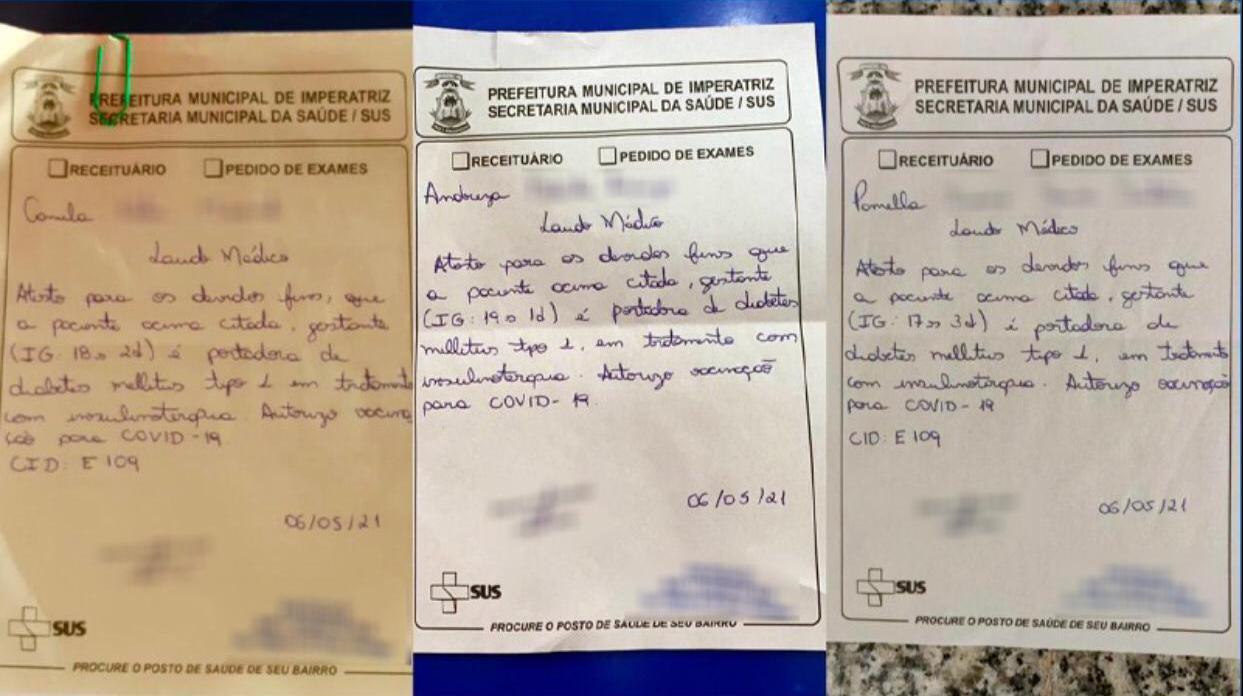 PREFEITURA MUNICIPAL DE IMPERATRIZ
SECRETARIA MUNICIPAL DA SAÚDE / SUS
RECEITUÁRIO PEDIDO DE EXAMES
Camila
Laudo Médico
Atesto para os devidos fins, que
a paciente acima citada, gestante
(IG: 18s 2d) é portadora de
diabetes mellitus tipo 1 em tratamento
com insulinoterapia. Autorizo vacina
ção para COVID-19.
CID: E 109
06/05/21
SUS
PROCURE O POSTO DE SAÚDE DE SEU BAIRRO
PREFEITURA MUNICIPAL DE IMPERATRIZ
SECRETARIA MUNICIPAL DA SAÚDE / SUS
RECEITUÁRIO PEDIDO DE EXAMES
Andreza
Laudo Médico
Atesto para os devidos fins que
a paciente acima citada, gestante
(IG: 19s 1d) é portadora de diabetes
mellitus tipo 1, em tratamento com
insulinoterapia. Autorizo vacinação
para COVID-19.
06/05/21
SUS
PROCURE O POSTO DE SAÚDE DE SEU BAIRRO
PREFEITURA MUNICIPAL DE IMPERATRIZ
SECRETARIA MUNICIPAL DA SAÚDE / SUS
RECEITUÁRIO PEDIDO DE EXAMES
Pamella
Laudo Médico
Atesto para os devidos fins que
a paciente acima citada, gestante
(IG: 17s 3d) é portadora de
diabetes mellitus tipo 1, em tratamento
com insulinoterapia. Autorizo vacinação
para COVID-19
CID: E 109
06/05/21
SUS
PROCURE O POSTO DE SAÚDE DE SEU BAIRRO